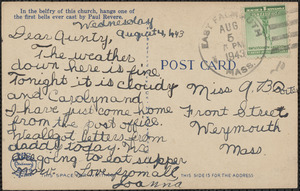 In the belfry of this church, hangs one of
the first bells ever cast by Paul Revere.
Wednesday
August 4, 1943
Dear Aunty,
The weather
down here is fine
Tonight it is cloudy
and Carolyn and
I have just come home
from the post office.
We all got letters from
daddy today. We
are going to eat supper
now. Love from all
Joanna
POST CARD
EAST FALMOUTH
AUG
5
PM
1943
MASS.
Miss G. B.
Front Street
Weymouth
Mass.
THIS SPACE
THIS SIDE IS FOR THE ADDRESS